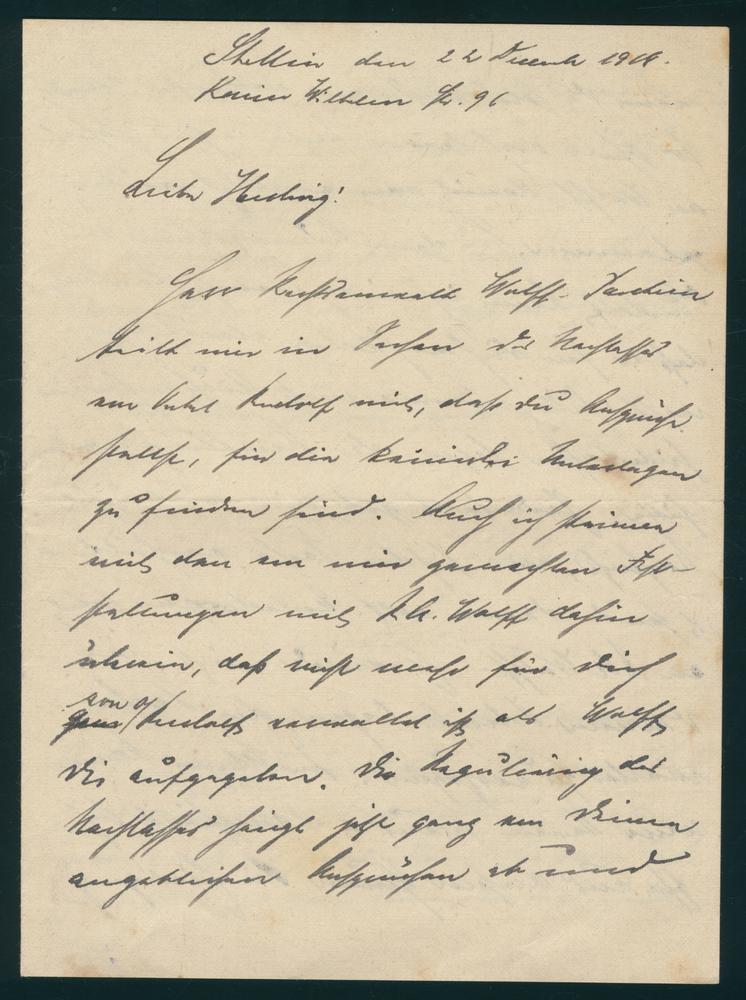 Stettin den 22 Decemb 191
Kaiser Wilhelm Str. 96
Liebe Hedwig!
Herr Rechtsanwalt Wolff-
teilt mir in Sachen des Nachlasses
von Onkel Rudolf mit, daß du Ansprüche
stellst, für die keinerlei Unterlagen
zu finden sind. Auch ich stimme
mit den von mir gemachten Fest-
stellungen mit R. A. Wolff dahin
überein, daß nicht mehr für Dich
von O/ Rudolf verwaltet ist als Wolff
Dir aufgegeben. Die Regulierung des
Nachlasses hängt jetzt ganz von Deinen
angeblichen Ansprüchen ab und